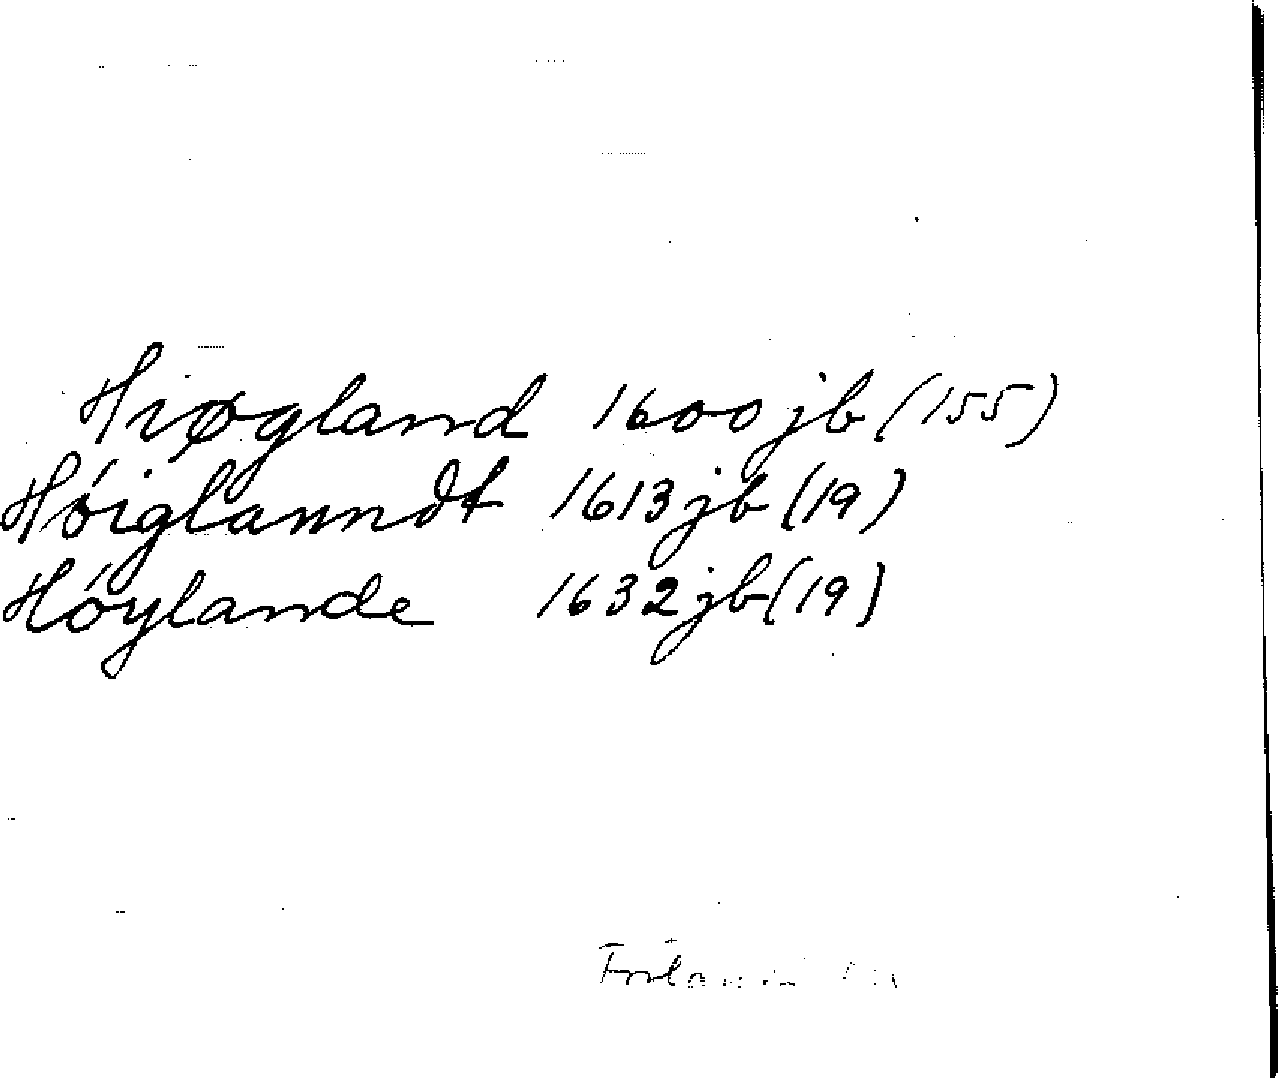 Hiøgland 1600 jb (155)
Hóiglanndt 1613 jb (19)
Hóylande 1632 jb (19)